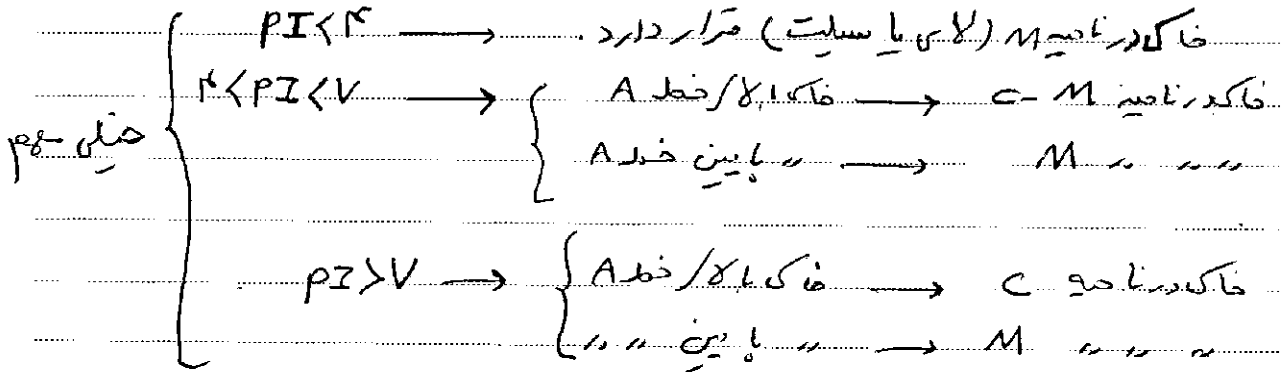 PI<۴ → خاک در ناحیه M (لای یا سیلت) قرار دارد.
۴<PI<۷ → خاک بالای خط A → خاک در ناحیه C-M
خیلی مهم
〃 پایین خط A → M 〃 〃 〃
PI>۷ → خاک بالای خط A → خاک در ناحیه C
〃 پایین 〃 〃 → M 〃 〃 〃